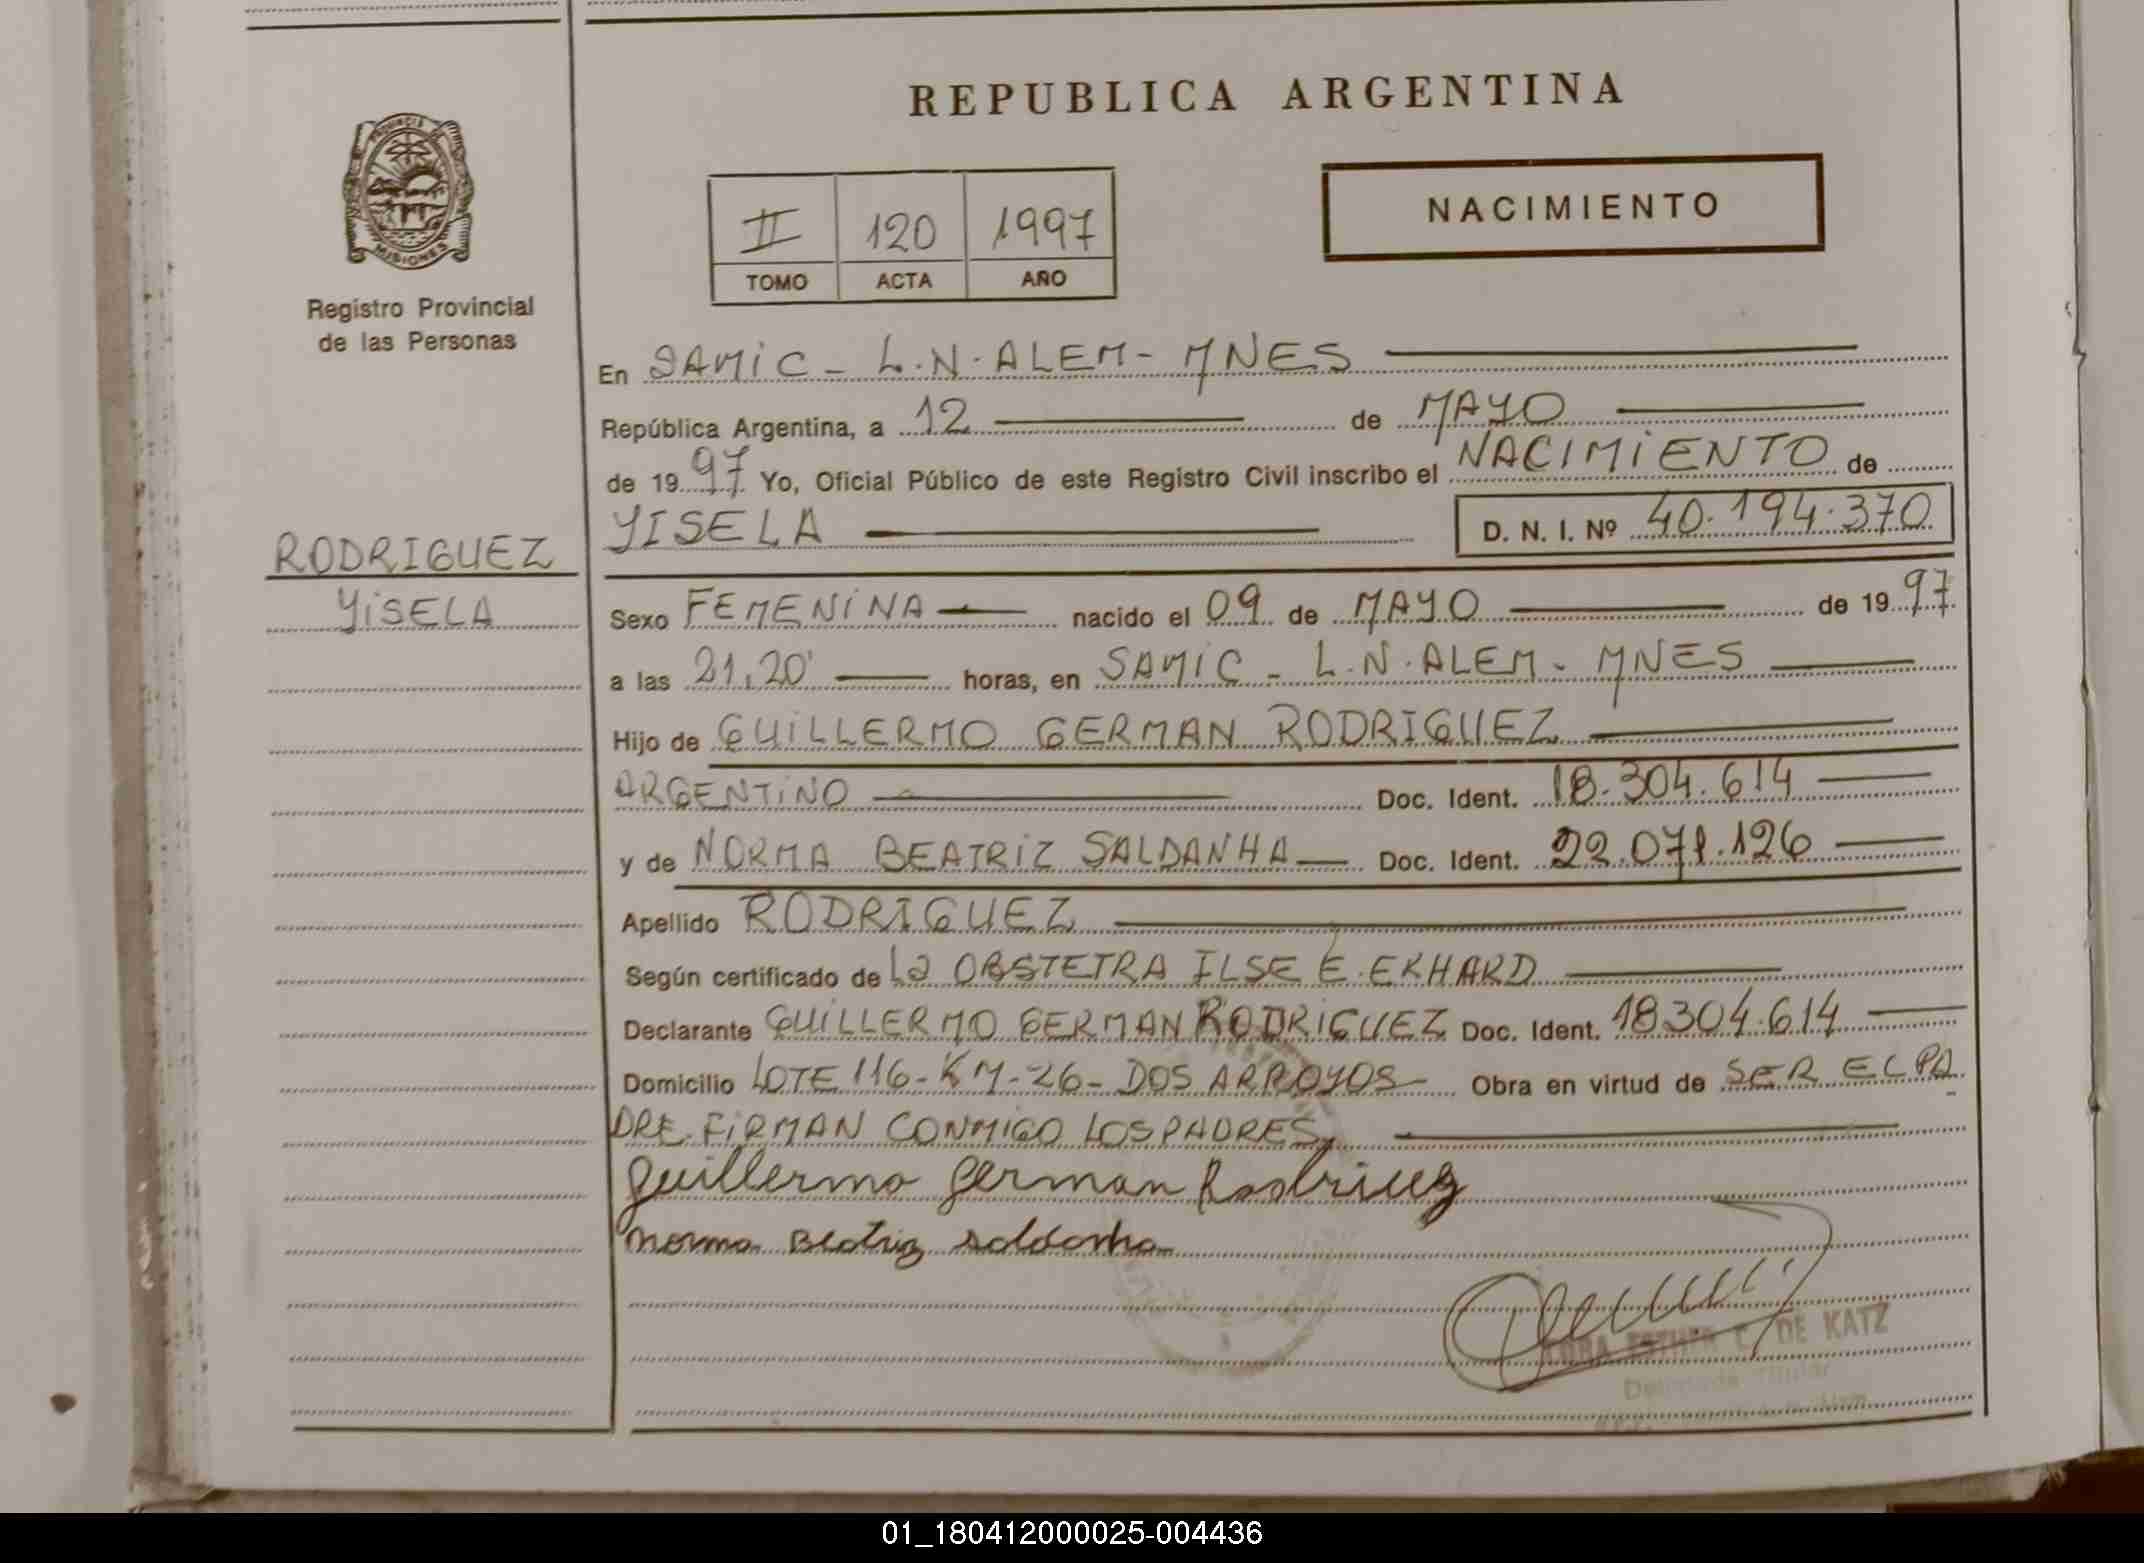 REPUBLICA ARGENTINA
PROVINCIA DE MISIONES
Registro Provincial
de las Personas
II 120 1997
TOMO ACTA AÑO
NACIMIENTO
En SAMIC - L.N. ALEM - MNES
República Argentina, a 12 de MAYO
de 1997 Yo, Oficial Público de este Registro Civil inscribo el NACIMIENTO de
YISELA D. N. I. Nº 40.194.370
RODRIGUEZ
YISELA
Sexo FEMENINA nacido el 09 de MAYO de 1997
a las 21,20' horas, en SAMIC - L.N. ALEM - MNES
Hijo de GUILLERMO GERMAN RODRIGUEZ
ARGENTINO Doc. Ident. 18.304.614
y de NORMA BEATRIZ SALDANHA Doc. Ident. 22.071.126
Apellido RODRIGUEZ
Según certificado de La OBSTETRA ILSE E. EKHARD
Declarante GUILLERMO GERMAN RODRIGUEZ Doc. Ident. 18304.614
Domicilio LOTE 116 - KM - 26 - DOS ARROYOS Obra en virtud de SER EL PA
DRE. FIRMAN CONMIGO LOS PADRES,
Guillermo German Rodriguez
Norma Beatriz Saldanha
ESTHER C. DE KATZ
Titular
01_180412000025-004436